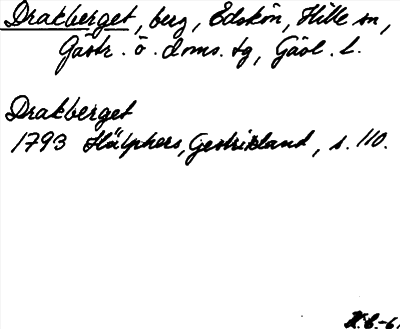 Drakberget, berg, Edskön, Hille sn,
Gästr. ö. doms. tg, Gävl. l.
Drakberget
1793 Hülphers, Gestrikland, s. 110.